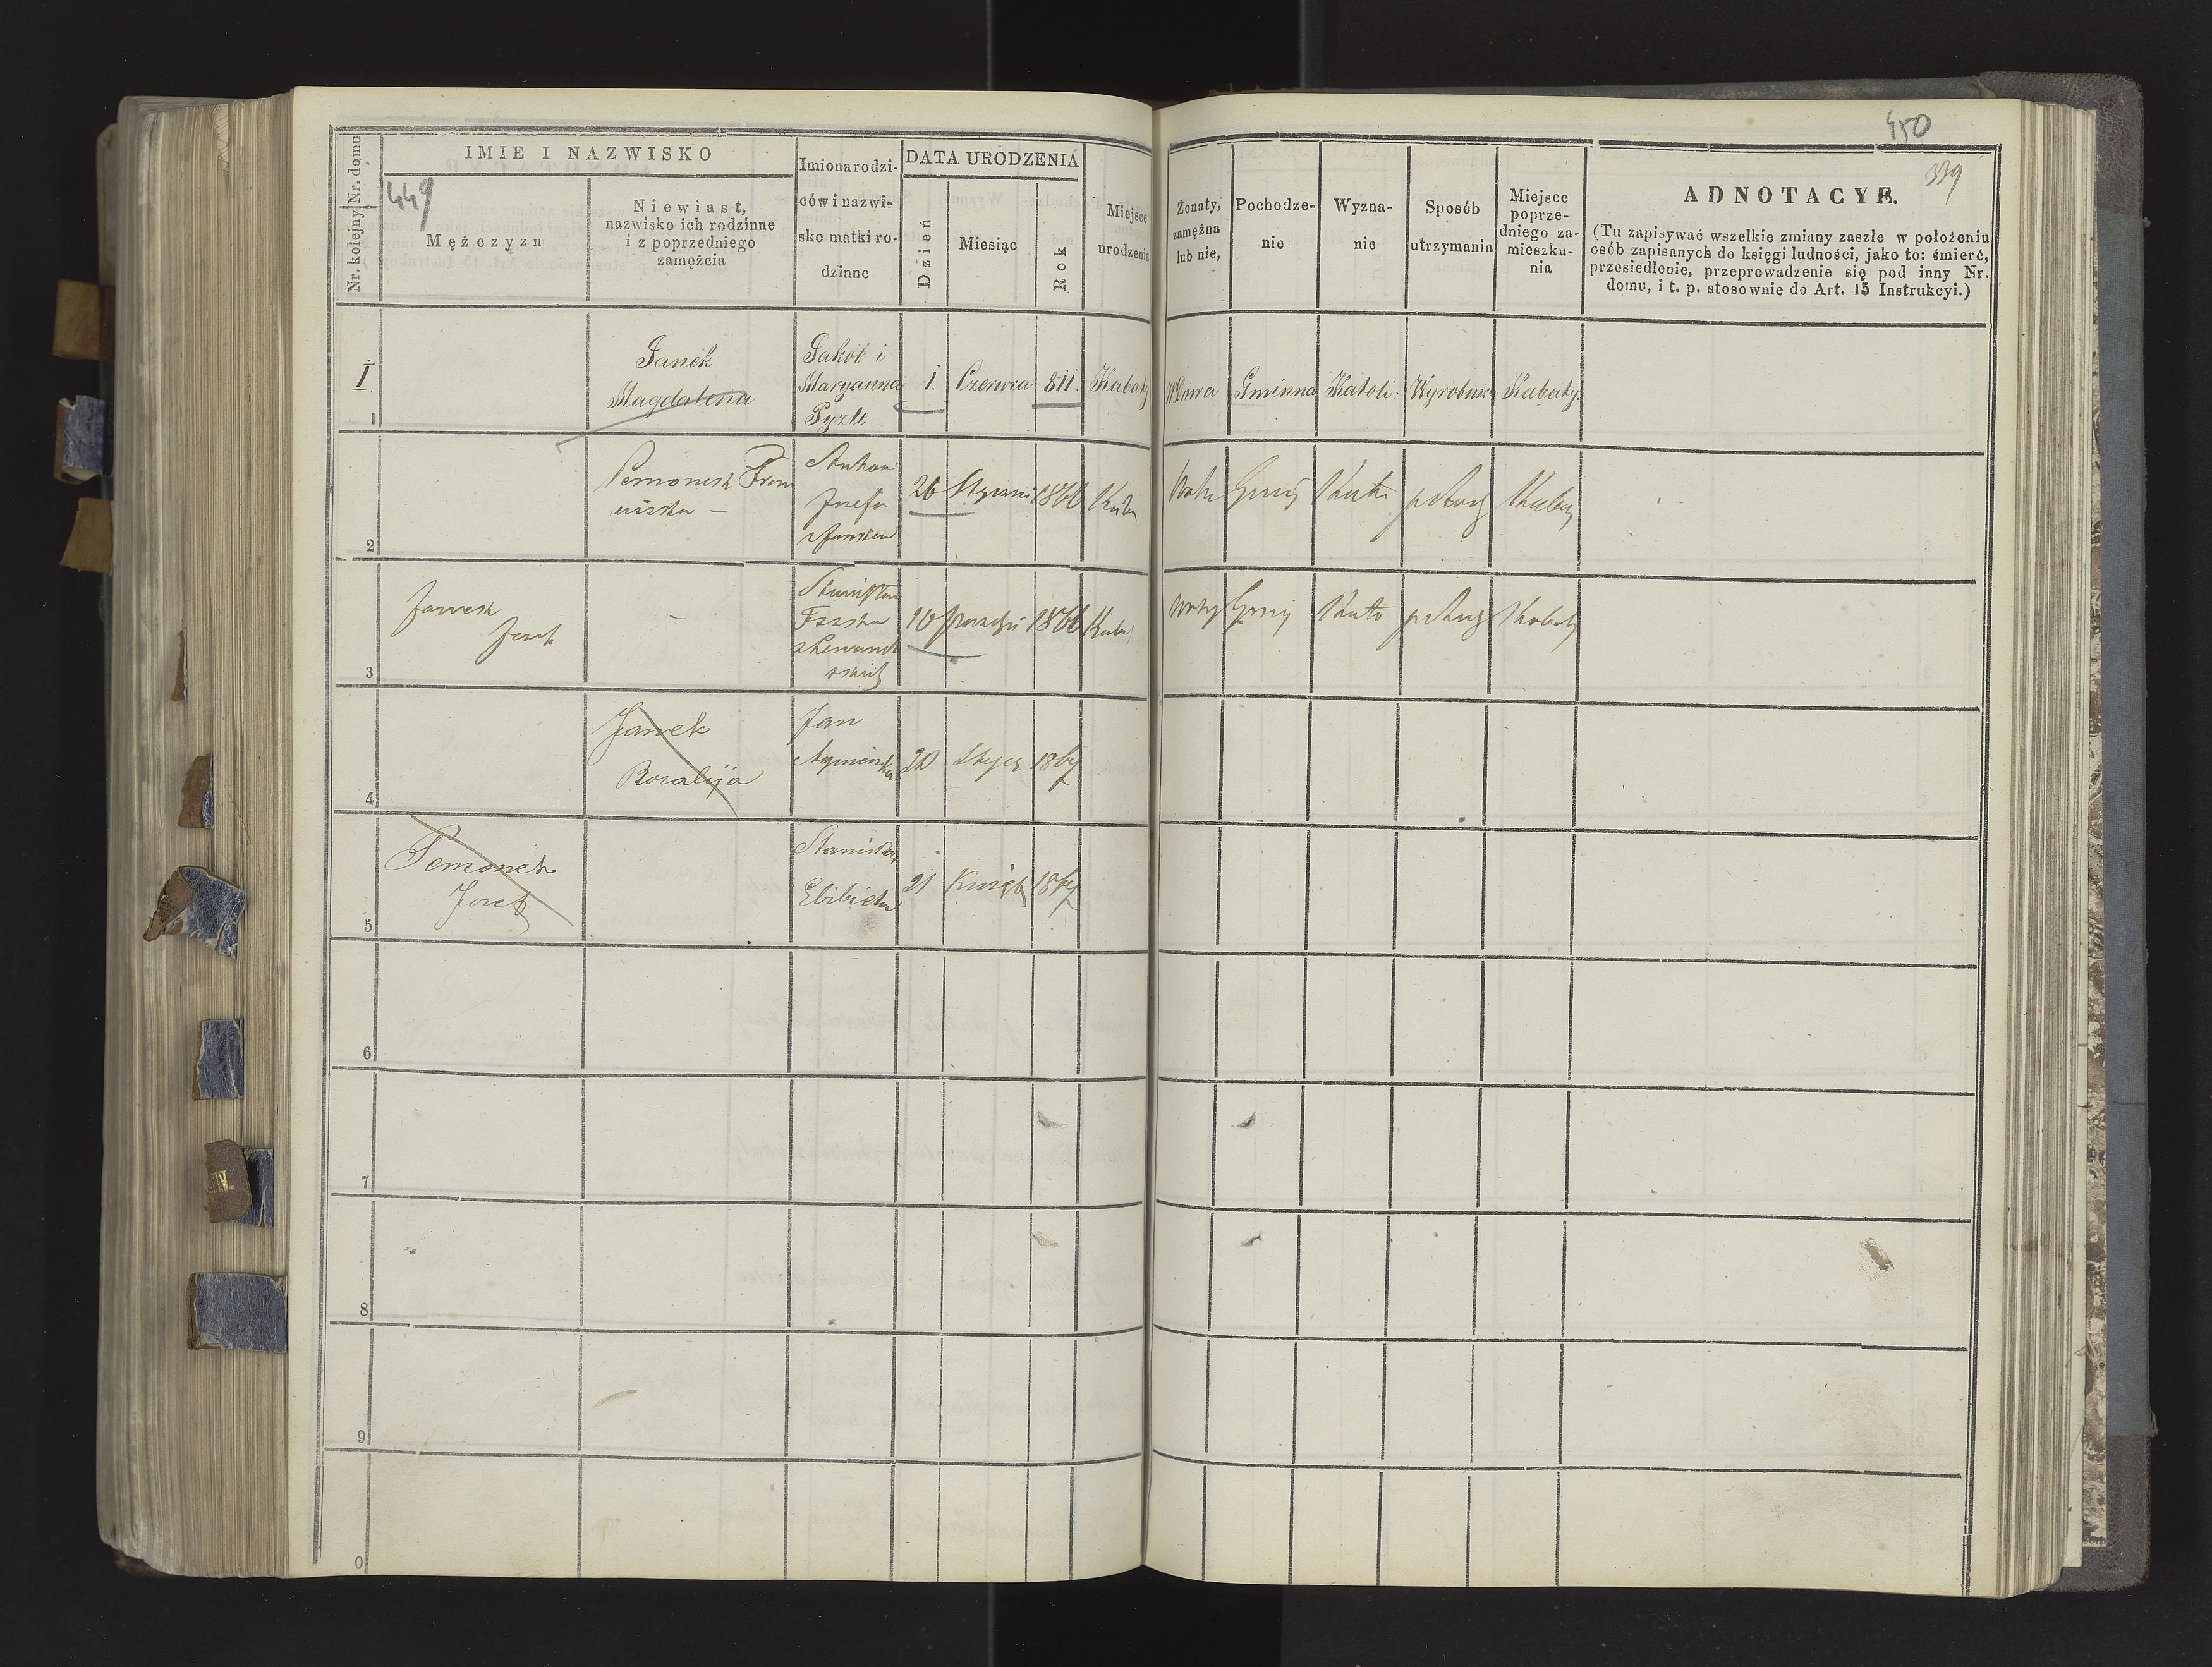 450
339
449
Nr. kolejny Nr. domu
IMIE I NAZWISKO
Mężczyzn
Niewiast,
nazwisko ich rodzinne
i z poprzedniego
zamęźcia
Imiona rodzi-
ców i nazwi-
sko matki ro-
dzinne
DATA URODZENIA
Dzień
Miesiąc
Rok
Miejsce
urodzenia
Żonaty,
zamęźna
lub nie,
Pochodze-
nie
Wyzna-
nie
Sposób
utrzymania
Miejsce
poprze-
dniego za-
mieszku-
nia
ADNOTACYE.
(Tu zapisywać wszelkie zmiany zaszłe w położeniu
osób zapisanych do księgi ludności, jako to: śmierć,
przesiedlenie, przeprowadzenie się pod inny Nr.
domu, i t. p. stosownie do Art. 15 Instrukcyi.)
1
Janek
Magdalena
Jakób i
Maryanna
Pyzlt
1. Czerwca 811 Kabaty Wdowa Gminna Katoli. Wyrobnica Kabaty
1
Antoni
Józefa
26 Styczni 1866 Kaba
2
Janek
Józef
Stanisław
10 1866 Kaba Kato Kabaty
3
Janek
Rozalija
Jan
Agnieszka
20 Stycz 1867
4
Pemonek
Józef
Stanisław
Elżbieta
21 Kwięt 1867
5
6
7
8
9
0